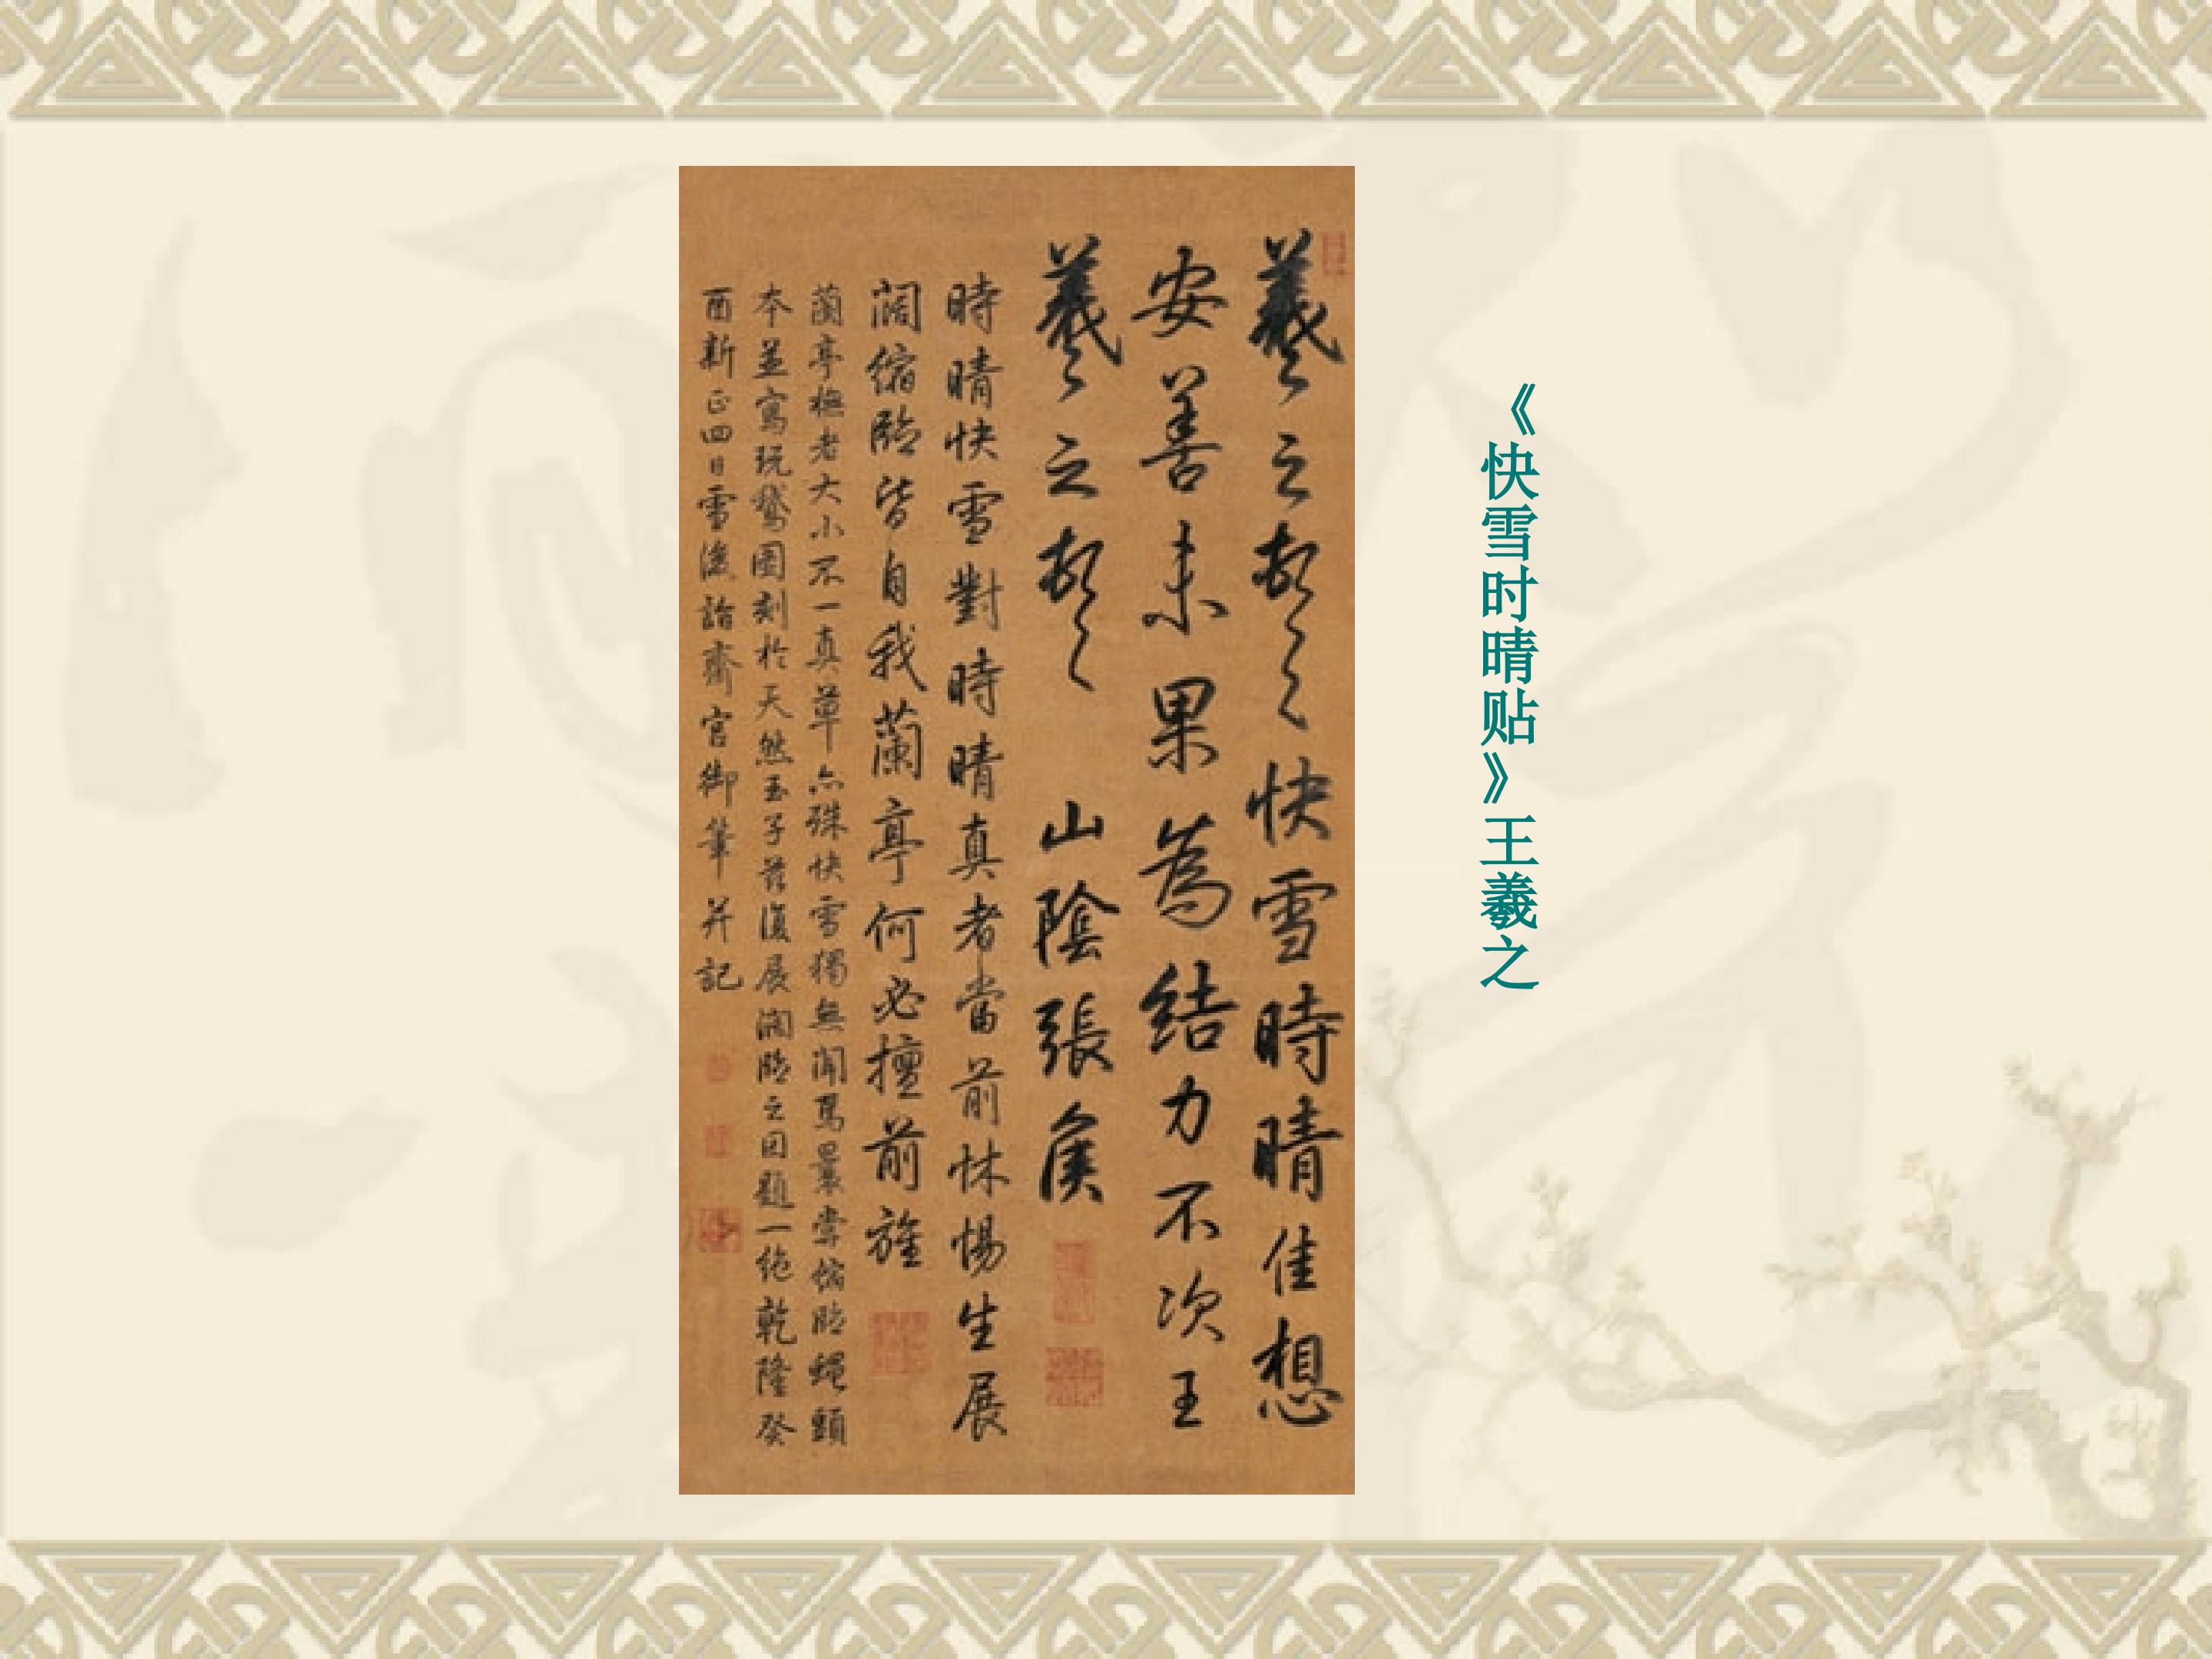 《快雪时晴贴》王羲之
羲之頓首快雪時晴佳想
安善未果為結力不次王
羲之頓首 山陰張侯
時晴快雪對時晴真者當前怵惕生展
闊縮臨皆自我蘭亭何必擅前旌
蘭亭橅者大小不一真草亦殊快雪獨無聞焉曩嘗縮臨蠅頭
本並寫玩鵞圖刻於天然玉子茲復展闊臨之因題一絶乾隆癸
酉新正四日雪後詣齋宮御筆并記